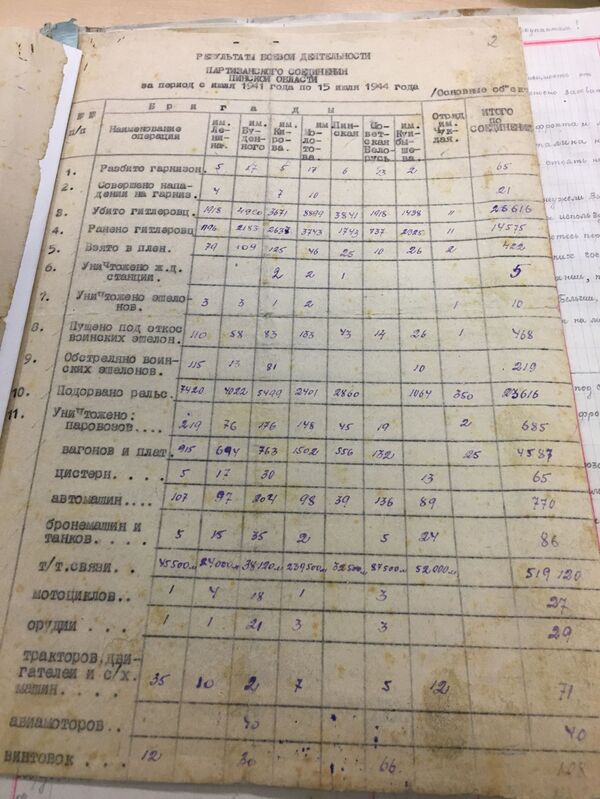 2
РЕЗУЛЬТАТЫ БОЕВОЙ ДЕЯТЕЛЬНОСТИ
ПАРТИЗАНСКОГО СОЕДИНЕНИЯ
ПИНСКОЙ ОБЛАСТИ
за период с июля 1941 года по 15 июля 1944 года
/Основные
№№ п/п Наименование операции Бригады им. Ленина. им. Буденного им. Кирова. им. Молотова. Пинская Советская Белорусь им. Куйбышева. Отряд им. Чуклая. ИТОГО ПО СОЕДИНЕНИЮ
1. Разбито гарнизон. 5 17 5 17 6 13 2 65
2. Совершено нападений на гарниз. 4 7 10 21
3. Убито гитлеровц. 1918 3671 8899 3841 1918 1438 " 26616
4. Ранено гитлеровц. 2183 3743 1743 737 2025 " 14575
5. Взято в плен. 79 109 125 46 25 10 26 2 422
6. Уничтожено ж.д. станции. 2 2 1 5
7. Уничтожено эшелонов. 3 3 1 2 1 10
8. Пущено под откос воинских эшелон. 110 58 83 133 43 14 26 1 468
9. Обстреляно воинских эшелонов. 115 13 81 10 219
10. Подорвано рельс. 7420 4022 5499 2401 2860 1064 350 23616
11. Уничтожено:
паровозов.... 219 76 176 148 45 19 2 685
вагонов и плат. 915 694 763 1502 556 132 25 4587
цистерн. . . . . 5 17 30 13 65
автомашин.... 107 97 204 98 39 136 89 770
бронемашин и танков. . . . . 5 15 35 2 5 24 86
т/т.связи. . 45500м 24000м 38120м 239500м 32500м 87500м 52000м 519120
мотоциклов.. 1 4 18 1 3 27
орудий . . . . 1 1 21 3 3 29
тракторов, двигателей и с/х. машин. . . . . 35 10 2 7 5 12 71
авиамоторов.. 40 40
винтовок . . . 12 30 66 108